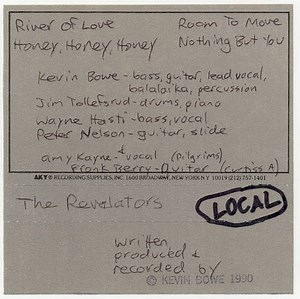 River of Love Room To Move
Honey, Honey, Honey Nothing But You
Kevin Bowe - bass, guitar, lead vocal,
balalaika, percussion
Jim Tollefsrud - drums, piano
Wayne Hasti - bass, vocal
Peter Nelson - guitar, slide
Amy Kayne - vocal (Pilgrims)
Frank Berry - Guitar (Curtiss A)
AKY® RECORDING SUPPLIES, INC. 1600 BROADWAY, NEW YORK N.Y. 10019 (212) 757-1401
The Revelators LOCAL
written
produced &
recorded by
© KEVIN BOWE 1990